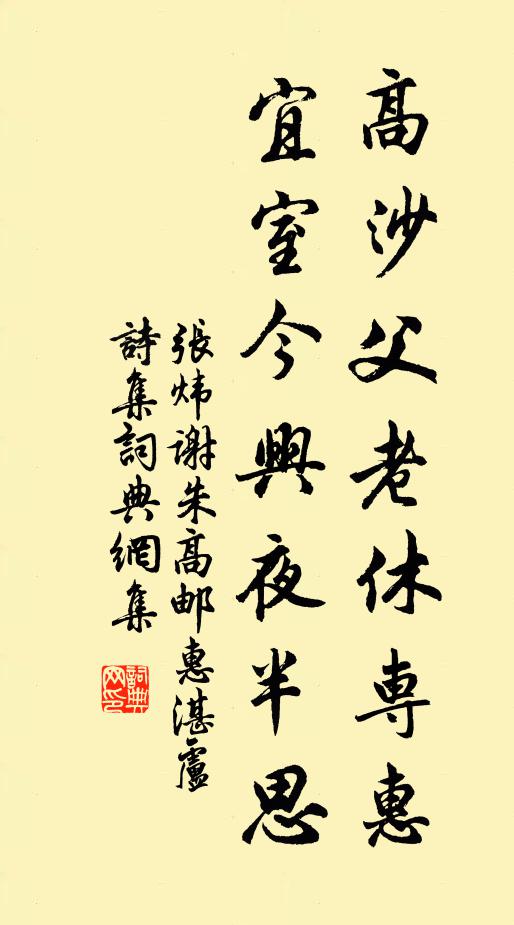 高沙父老休専惠
宜室今興夜半思
張炜谢朱高邮惠湛廬
詩集詞典網集
詞典
网印